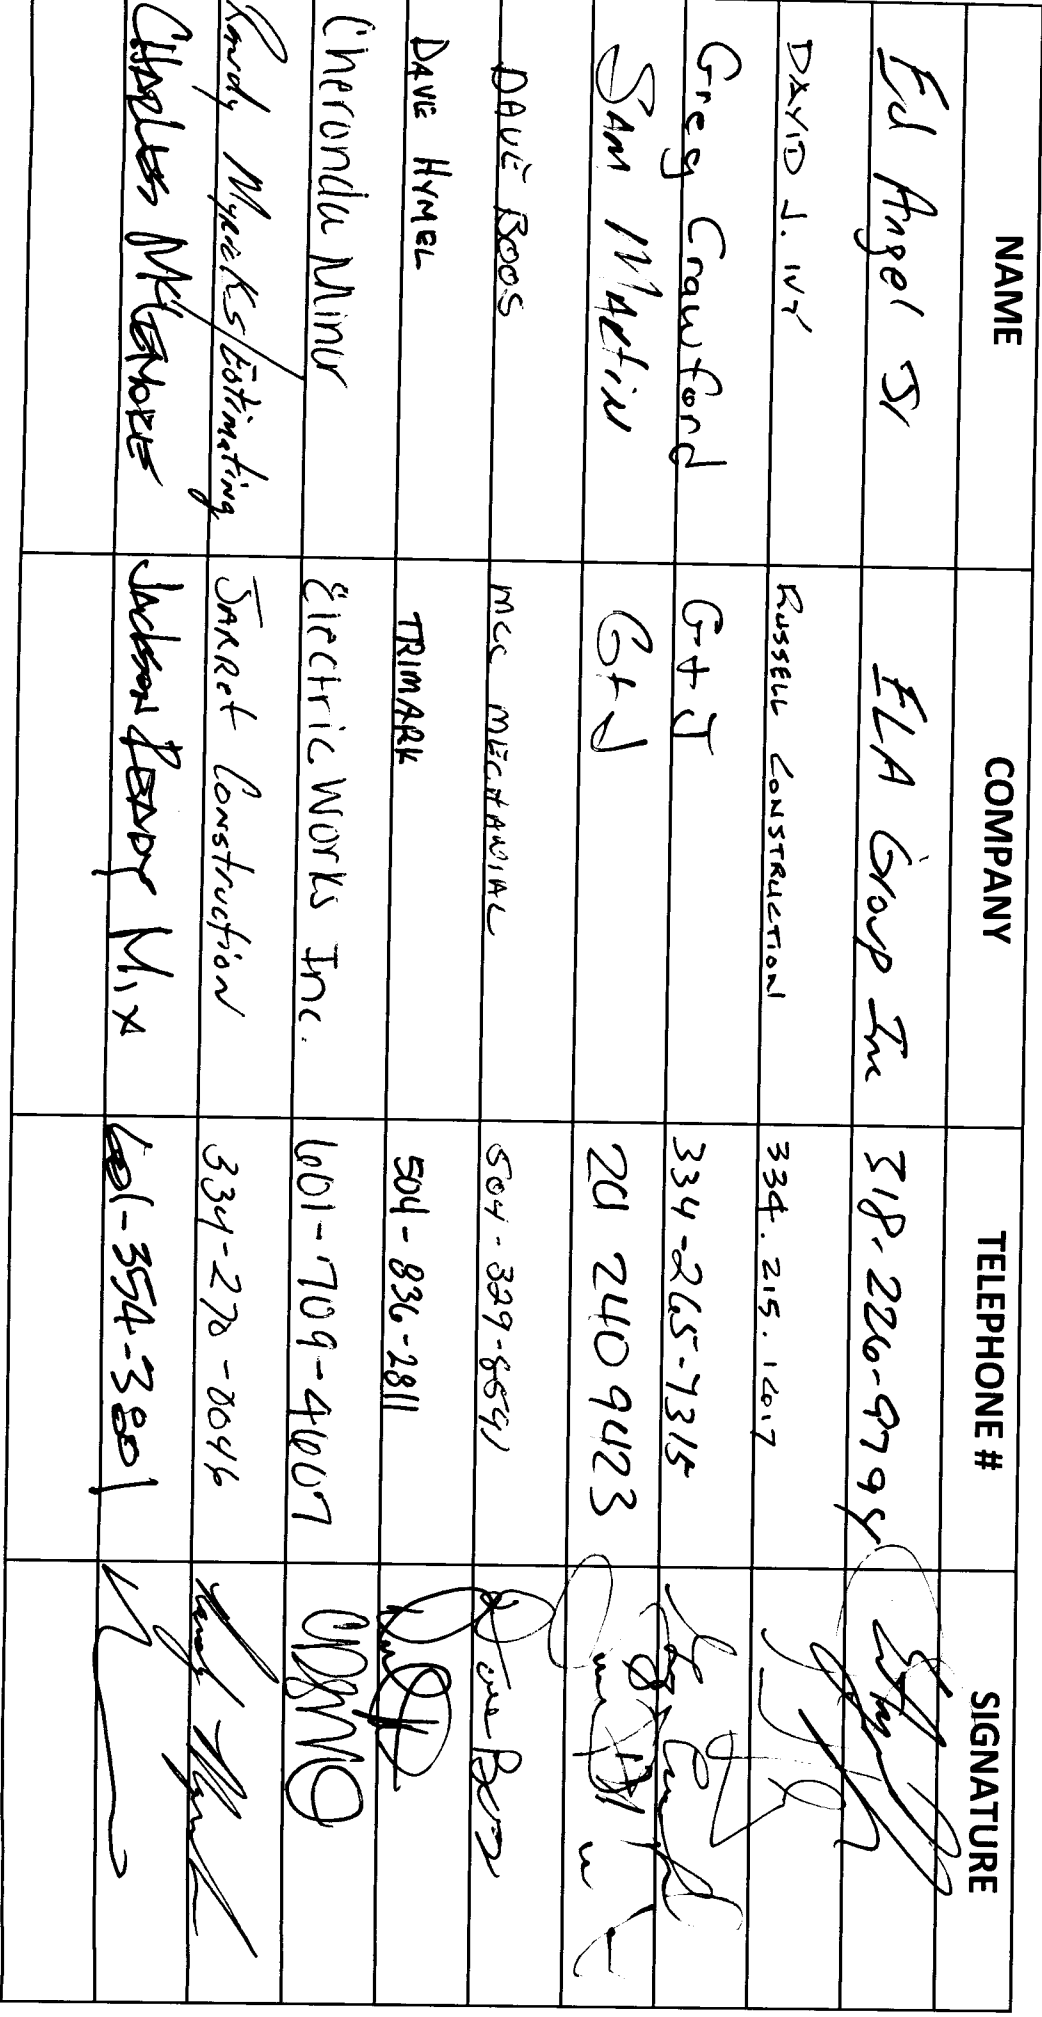 NAME COMPANY TELEPHONE # SIGNATURE
Ed Angel Jr ELA Group Inc 318-226-9798
DAVID J. IVY RUSSELL CONSTRUCTION 334.215.1617
Greg Crawford G+J 334-265-7315
SAM MARTIN G+J 201 240 9423
DAVE BOOS MCC MECHANIAL 504-329-8591 Dave Boos
DAVE HYMEL TRIMARK 504-836-2811
Cheronda Minor Electric Works Inc. 601-709-4607
Randy Myricks/Estimating JARRet Construction 334-270-0046
CHARLES McLEMORE Jackson READY Mix 601-354-3801